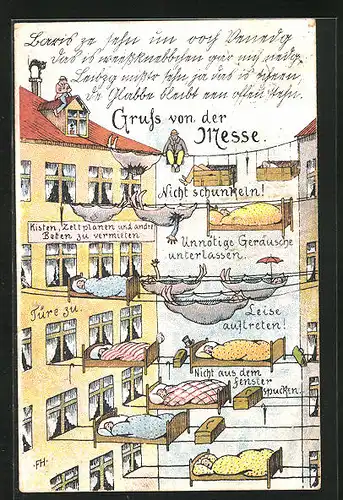 Baris ze sehn un ooch Venedig
das is weeßknebbchen gar nich nedig.
Leibzg mußtr sehn ja das is scheen,
de Glabbe bleibt een offen stehn.
Gruß von der
Messe.
Nicht schunkeln!
Kisten, Zeltplanen und andre
Beten zu vermieten
Unnötige Geräusche
unterlassen.
Türe zu.
Leise
auftreten!
Nicht aus dem
Fenster
spucken.
·FH·